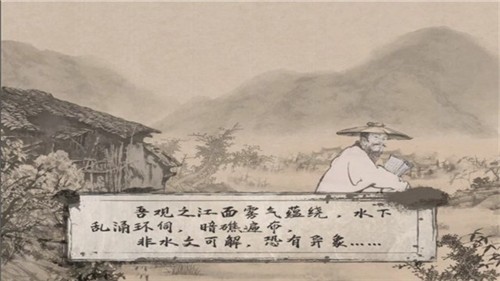 吾观之江面雾气蕴绕，水下
乱涌环伺，暗礁遍布，
非水文可解，恐有异象……